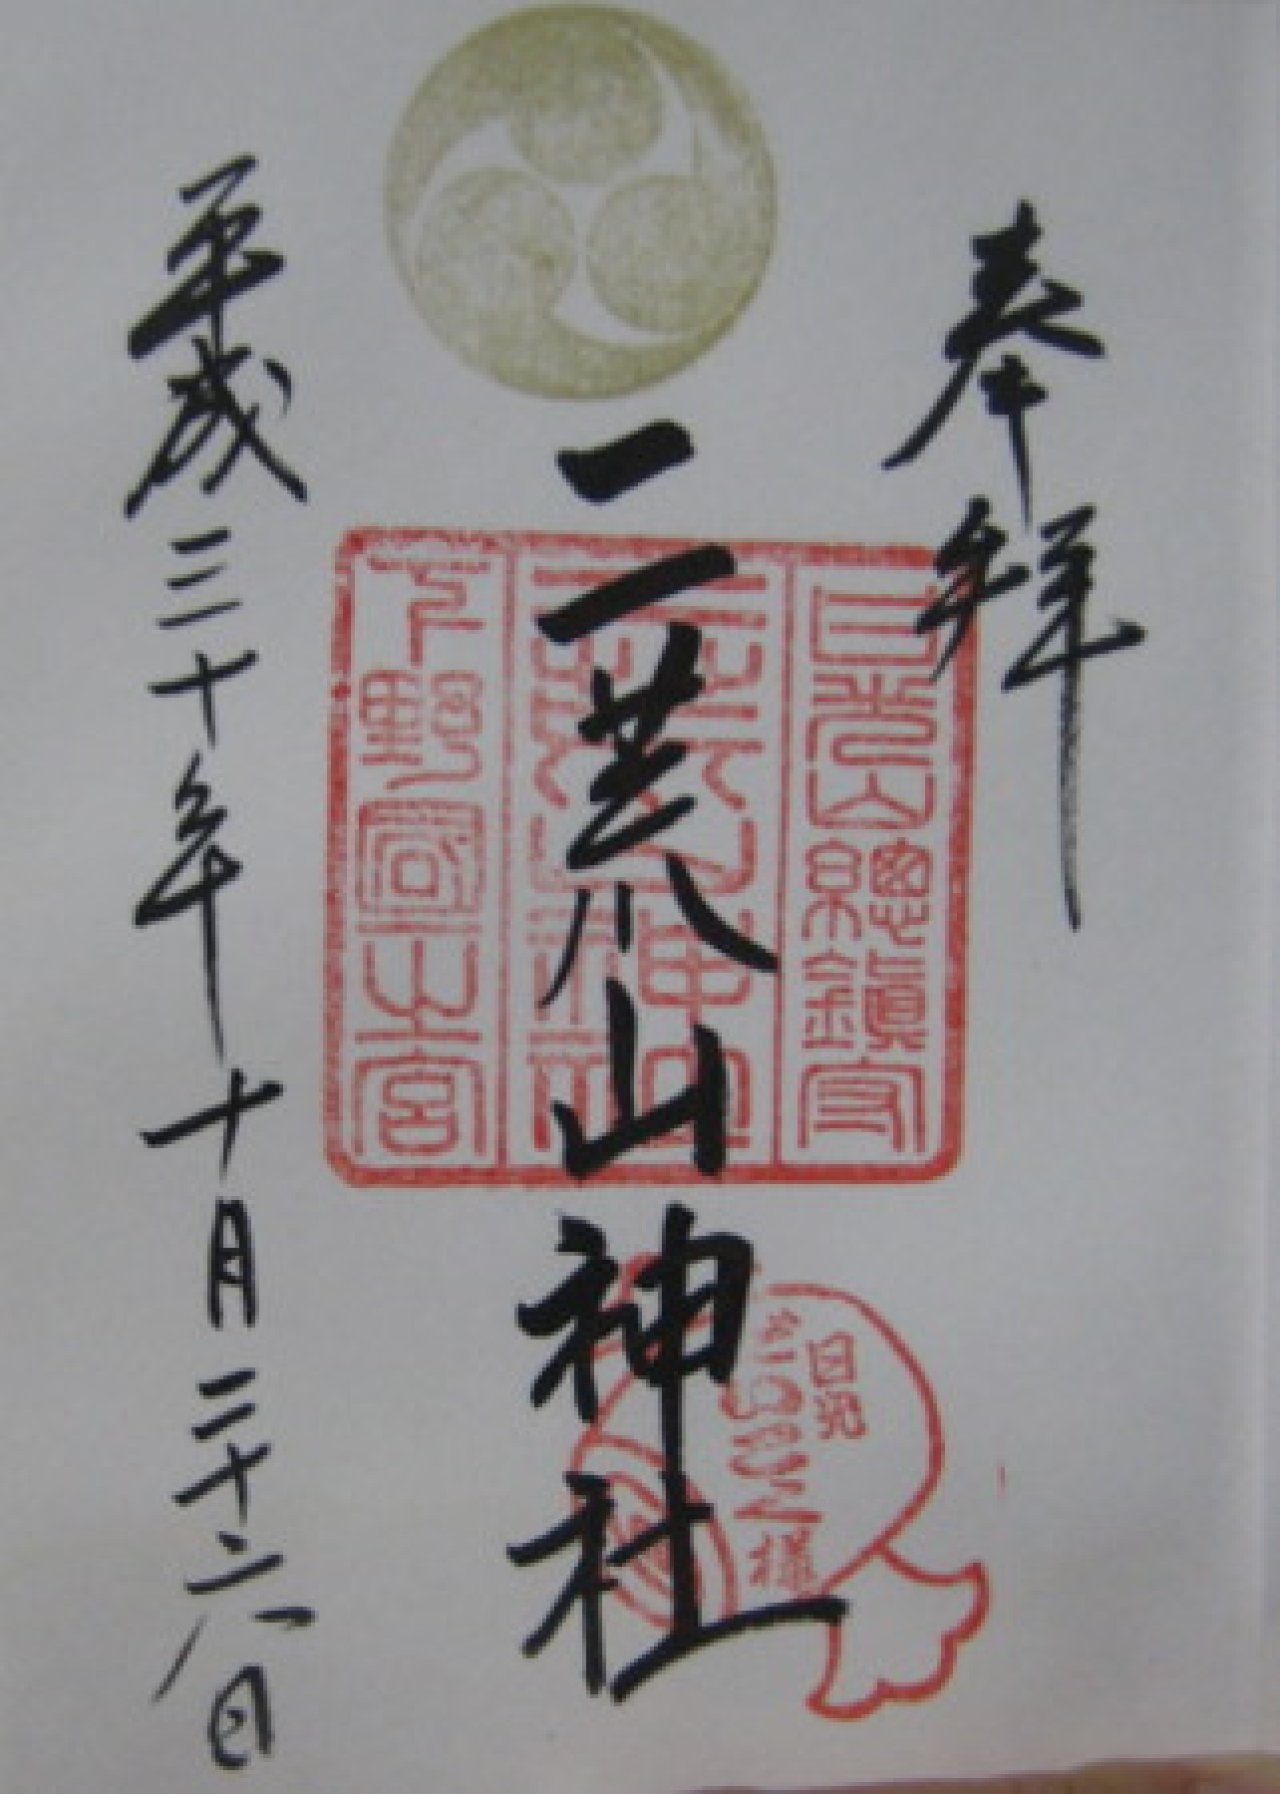 奉拝
日光山総鎮守
二荒山神社
二荒山神社
下野國一之宮
日光
だいこくさま
様
平成三十年十月二十六日